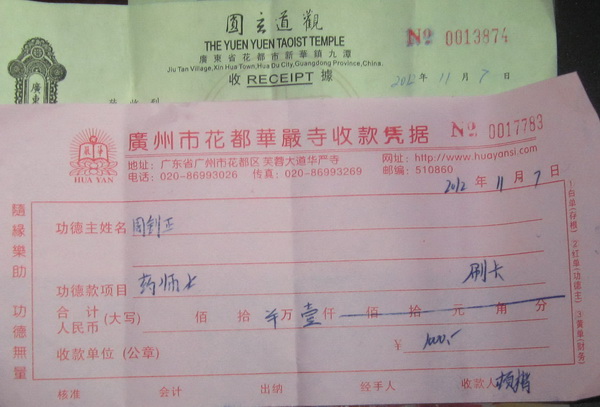 圓玄道觀
THE YUEN YUEN TAOIST TEMPLE
No 0013874
廣東省花都市新華鎮九潭
Jiu Tan Village, Xin Hua Town, Hua Du City, Guangdong Province, China.
收 RECEIPT 據
2012 年 11 月 7 日
廣東
廣州市花都華嚴寺收款凭据
No 0017783
HUA YAN
地址：广东省广州市花都区芙蓉大道华严寺
网址：http://www.huayansi.com
电话：020-86993026 传真：020-86993269
邮编：510860
2012 年 11 月 7 日
隨緣樂助
功德無量
功德主姓名 周剑正
功德款项目 药师七 刷卡
合计人民币 (大写) 佰 拾 万 壹仟 佰 拾 元 角 分
收款单位 (公章) ¥ 1000.-
核准 会计 出纳 经手人 收款人
①白单(存根) ②红单(功德主) ③黄单(财务)